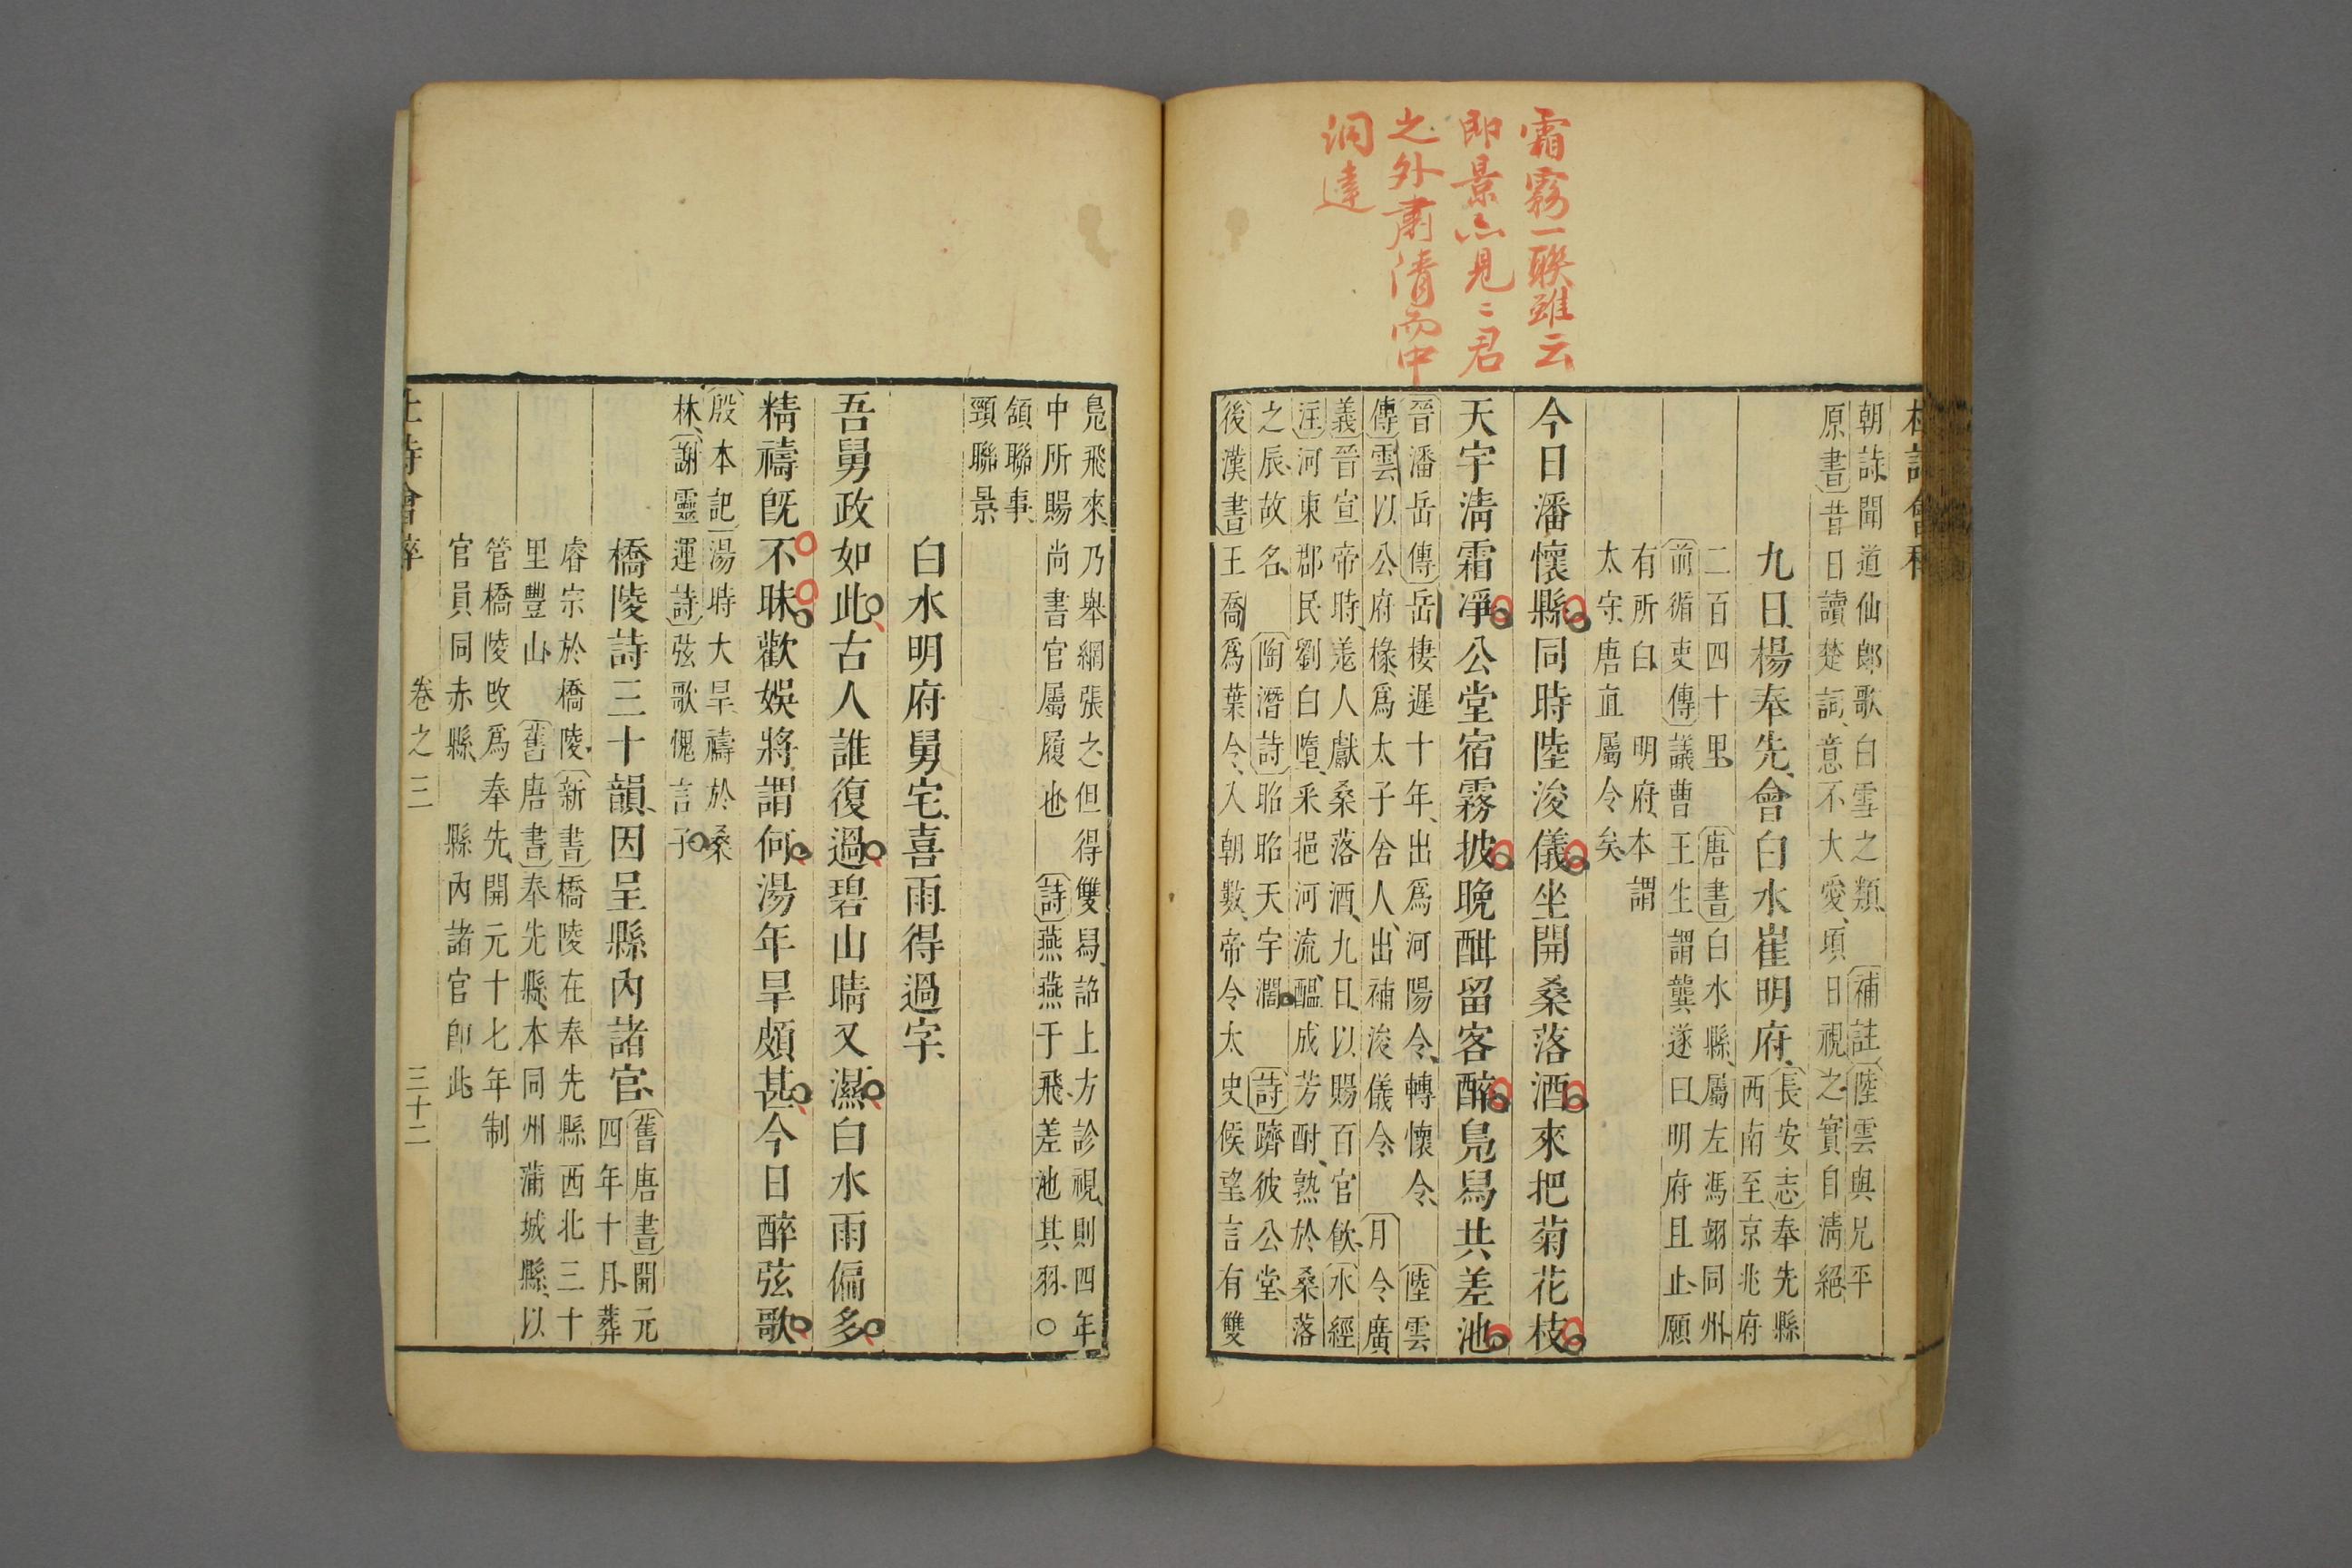 霜霧一聯雖云
即景亦見二君
之外肅清而中
洞達
杜詩會稡
朝詩聞道仙郎歌白雪之類補註陸雲與兄平
原書昔日讀楚詞意不大愛頃日視之實自淸絕
九日楊奉先會白水崔明府長安志奉先縣
西南至京兆府
二百四十里唐書白水縣屬左馮翊同州
前循吏傳議曹王生謂龔遂曰明府且止願
有所白明府本謂
太守唐直屬令矣
今日潘懷縣同時陸浚儀坐開桑落酒來把菊花枝
天宇淸霜凈公堂宿霧披晚酣留客醉鳧舄共差池
晉潘岳傳岳棲遲十年出爲河陽令轉懷令陸雲
傳雲以公府椽爲太子舍人出補浚儀令月令廣
義晉宣帝時羗人獻桑落酒九日以賜百官飲水經
注河東郡民劉白墮采挹河流醖成芳酎熟於桑落
之辰故名陶潛詩昭昭天宇濶詩躋彼公堂
後漢書王喬爲葉令入朝數帝令太史候望言有雙
鳧飛來乃舉網張之但得雙舄詔上方診視則四年
中所賜尚書官屬履也詩燕燕于飛差池其羽○
頷聯事
頸聯景
白水明府舅宅喜雨得過字
吾舅政如此古人誰復過碧山晴又濕白水雨偏多
精禱旣不昧歡娛將謂何湯年旱頗甚今日醉弦歌
殷本記湯時大旱禱於桑
林謝靈運詩弦歌愧言子
橋陵詩三十韻因呈縣內諸官舊唐書開元
四年十月葬
睿宗於橋陵新書橋陵在奉先縣西北三十
里豐山舊唐書奉先縣本同州蒲城縣以
管橋陵改爲奉先開元十七年制
官員同赤縣縣內諸官卽此
杜詩會稡 卷之三 三十二